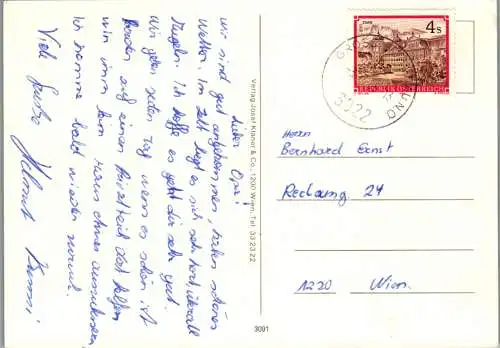 Lieber Opa!
Wir sind gut angekommen, haben schönes
Wetter. Im Zelt liegt es sich sehr hart, überall
Nugeln. Ich hoffe es geht dir sehr gut.
Wir gehen jeden Tag wenn es schön ist
baden auf einen Privatteich dort helfen
wir immer dem Haus etwas
Ich komme bald wieder
Viele Grüße Helmut
Verlag Josef Klaner & Co., 1200 Wien, Tel. 33 23 22
3091
4 S
STIFT
REPUBLIK ÖSTERREICH
3922
GMÜND
Herrn
Bernhard Ernst
Rechaung 24
1220 Wien